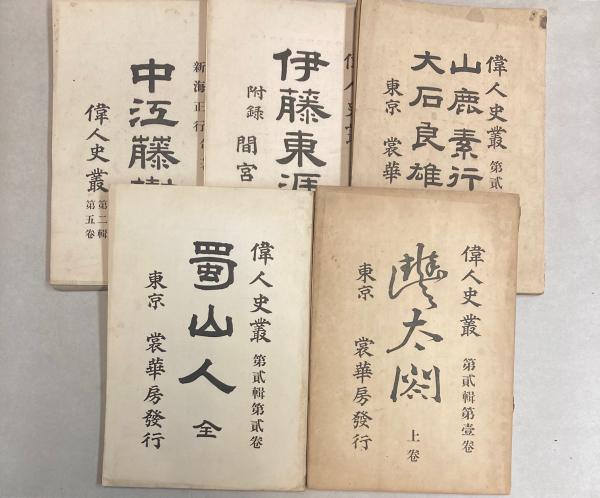 新海正行
中江藤樹
偉人史叢
第二輯
第五卷
偉人史叢
伊藤東涯
附録 間宮
偉人史叢 第貳
山鹿素行
大石良雄
東京 裳華
偉人史叢 第貳輯第貳卷
蜀山人 全
東京 裳華房發行
偉人史叢 第貳輯第壹卷
豊太閤 上卷
東京 裳華房發行